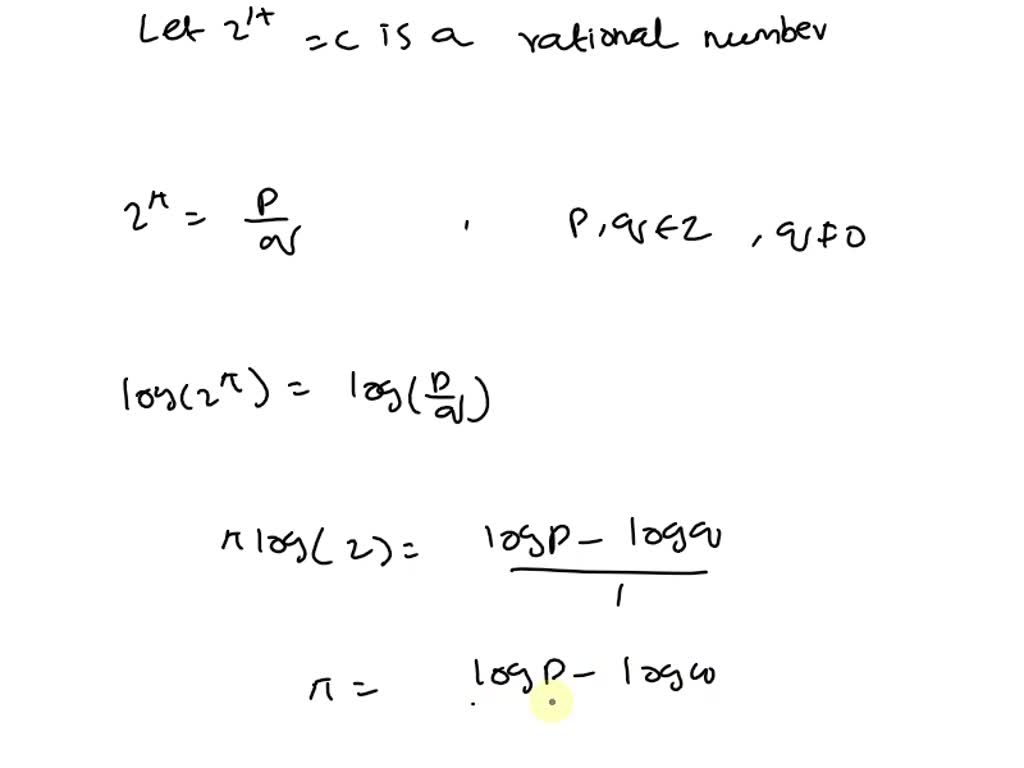 Let 2^π = c is a rational number
2^π = p/q , p, q ∈ Z, q ≠ 0
log(2^π) = log(p/q)
π log(2) = (log p - log q)/1
π = log p - log q